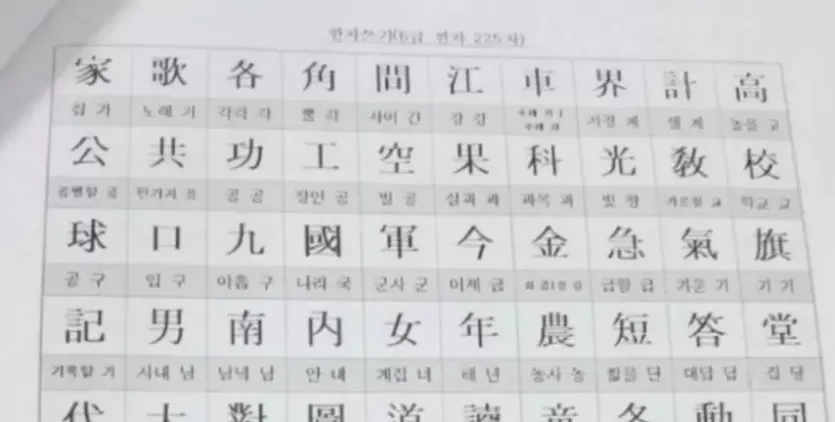 한자쓰기(6급 한자 225자)
家 歌 各 角 間 江 車 界 計 高
집 가 노래 가 각각 각 뿔 각 사이 간 강 강 셀 계 높을 고
公 共 功 工 空 果 科 光 敎 校
공 공 장인 공 빌 공 실과 과 과목 과 빛 광 가르칠 교 학교 교
球 口 九 國 軍 今 金 急 氣 旗
공 구 입 구 아홉 구 나라 국 군사 군 이제 금 급할 급 기운 기 기 기
記 男 南 內 女 年 農 短 答 堂
기록할 기 사내 남 남녁 남 안 내 계집 녀 해 년 농사 농 짧을 단 대답 답 집 당
代 大 對 圖 道 讀 童 冬 動 同